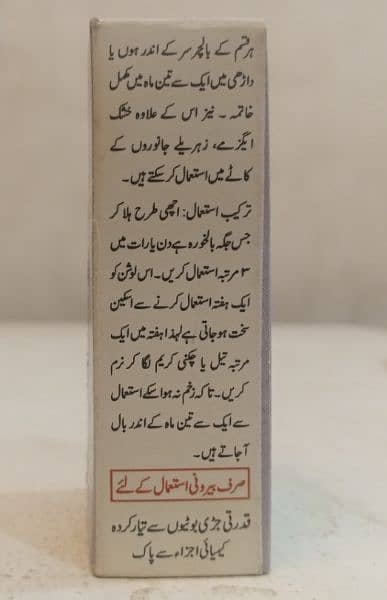 ہر قسم کے بالچر سر کے اندر ہوں یا
داڑھی میں ایک سے تین ماہ میں مکمل
خاتمہ ۔ نیز اس کے علاوہ خشک
ایگزیمے، زہریلے جانوروں کے
کاٹے میں استعمال کر سکتے ہیں۔
ترکیب استعمال: اچھی طرح ہلا کر
جس جگہ بالخورہ ہے دن یا رات میں
۳ مرتبہ استعمال کریں۔ اس لوشن کو
ایک ہفتہ استعمال کرنے سے اسکین
سخت ہو جاتی ہے لہذا ہفتہ میں ایک
مرتبہ تیل یا چکنی کریم لگا کر نرم
کریں۔ تاکہ زخم نہ ہو اسکے استعمال
سے ایک سے تین ماہ کے اندر بال
آ جاتے ہیں۔
صرف بیرونی استعمال کے لئے
قدرتی جڑی بوٹیوں سے تیار کردہ
کیمیائی اجزاء سے پاک